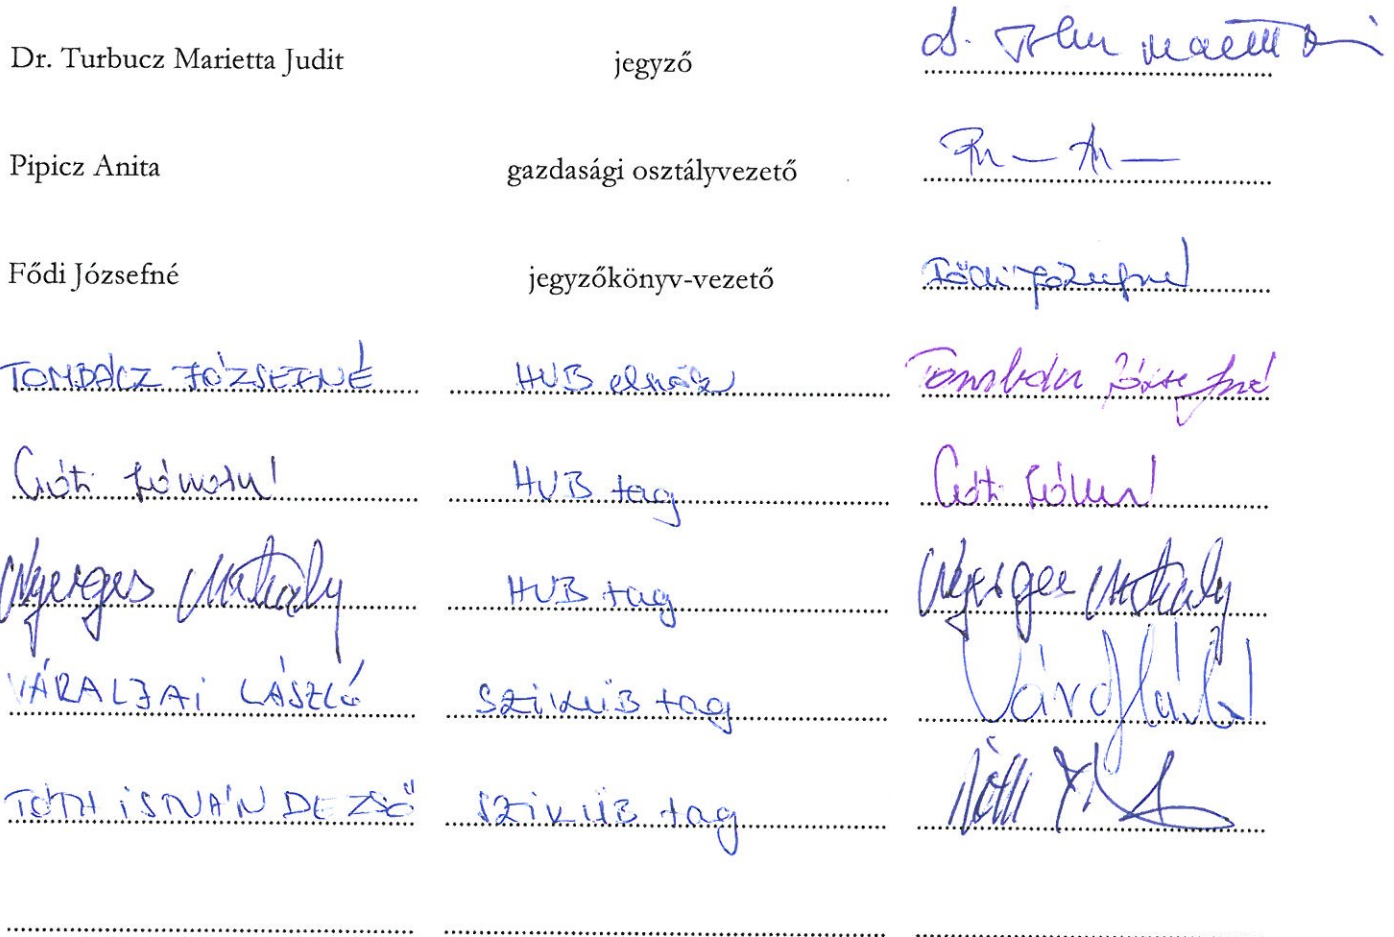 Dr. Turbucz Marietta Judit jegyző
Pipicz Anita gazdasági osztályvezető
Fődi Józsefné jegyzőkönyv-vezető Fődi Józsefné
TOMBÁCZ JÓZSEFNÉ HUB elnök Tombácz Józsefné
HUB tag
Nyerges Mihály HUB tag Nyerges Mihály
VÁRALJAI LÁSZLÓ SZIKÜB tag
TÓTH ISTVÁN DEZSŐ SZIKÜB tag Tóth